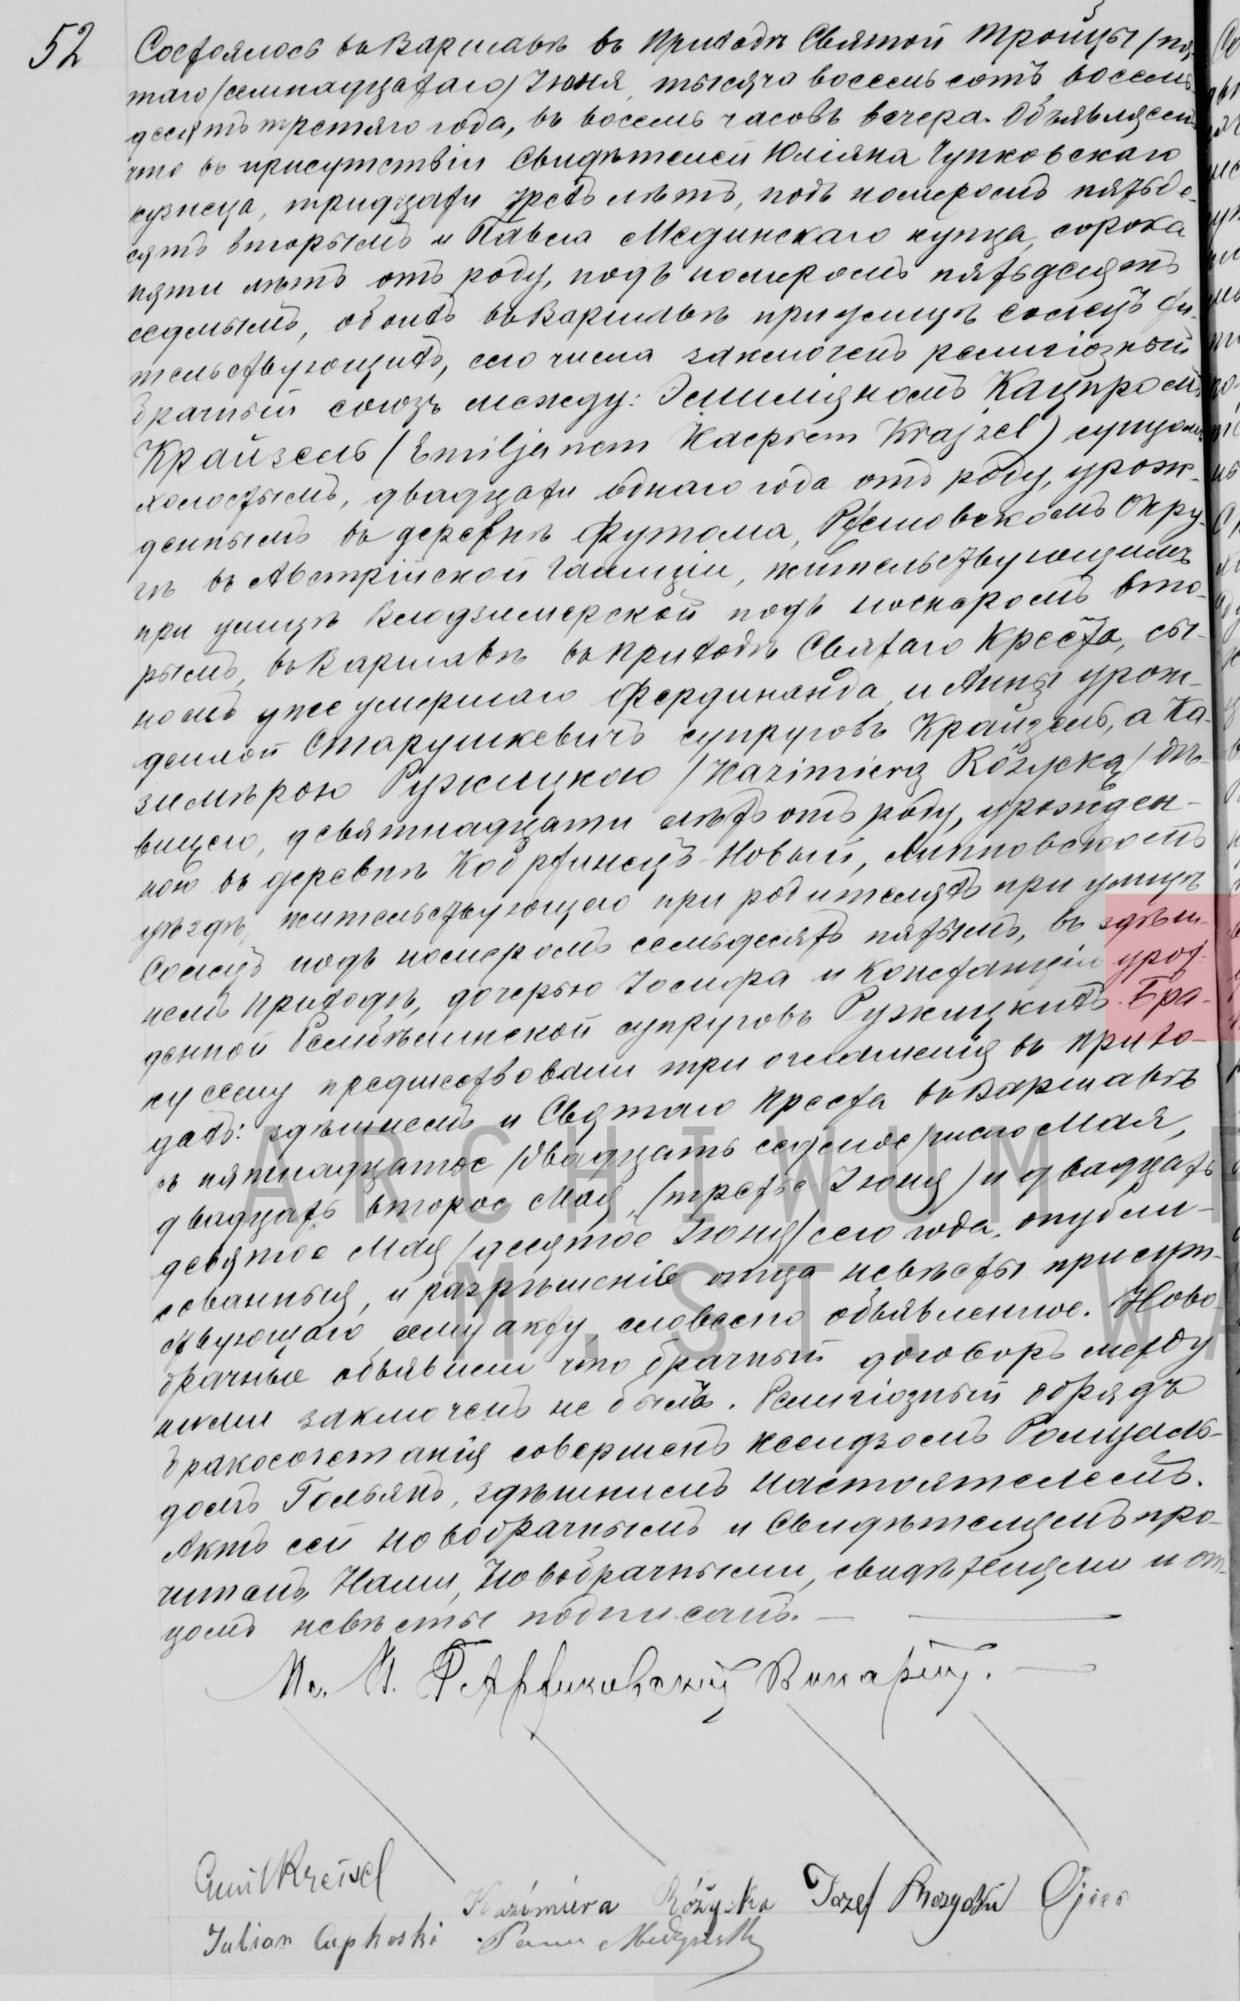 52
Состоялось въ Варшавѣ въ Приходѣ Святой Тройцы /пя-
таго/семнадцатаго/ Іюня, тысяча восемьсотъ восемь-
десятъ третяго года, въ восемь часовъ вечера. Объявляемъ
что въ присутствіи Свидѣтелей Юліяна Чупковскаго
кузнеца, тридцати трехъ лѣтъ, подъ номеромъ пятьде-
сятъ вторымъ и Павла Мединскаго купца, сорока
пяти лѣтъ отъ роду, подъ номеромъ пятьдесятъ
седмымъ, обоихъ въ Варшавѣ при улицѣ Солецъ жи-
тельствующихъ, сего числа заключенъ религіозный
брачный союзъ между: Эмиліяномъ Кацпромъ
Крайзель (Emiljanem Kacprem Krajzel) купцомъ
холостымъ, двадцати однаго года отъ роду, урож-
деннымъ въ деревнѣ Футома, Окру-
гѣ въ Австрійской Галиціи, жительствующимъ
при улицѣ Влодзимерской подъ номеромъ вто-
рымъ, въ Варшавѣ въ Приходѣ Святаго Креста, сы-
номъ уже умершаго Фердинанда и Анны урож-
денной Старушкевичъ супруговъ Крайзель, а Ка-
зимѣрою Ружицкою /Kazimierą Różycką/ дѣ-
вицею, девятнадцати лѣтъ отъ роду, урожден-
ною въ деревнѣ Новый, Липновскомъ
уѣздѣ, жительствующею при родителяхъ при улицѣ
Солецъ подъ номеромъ семьдесятъ пятымъ, въ здѣш-
немъ Приходѣ, дочерью Іосифа и Констанціи урож-
денной супруговъ Ружицкихъ. Бра-
ку сему предшествовали три оглашенія въ прихо-
дахъ: здѣшнемъ и Святаго Креста въ Варшавѣ
въ пятнадцатое /двадцать седьмое/ число Мая,
двадцать второе Мая, /третье Іюня/ и двадцать
девятое Мая /десятое Іюня/ сего года, опубли-
кованныя, и разрѣшеніе отца невѣсты присут-
ствующаго сему акту, словесно объявленное. Ново-
брачные объявили что брачный договоръ между
ними заключенъ не былъ. Религіозный обрядъ
бракосочетанія совершенъ Ксендзомъ Ромуаль-
домъ Гольянъ, здѣшнимъ настоятелемъ.
Актъ сей Новобрачнымъ и Свидѣтелямъ про-
читанъ, Нами, Новобрачными, свидѣтелями и от-
цомъ невѣсты подписанъ. —
Кс. Викарій. —
Emil Kreisel
Kazimiera Różycka Józef Rózycki Ojciec
Julian Cupkoski
ARCHIWUM
M. ST. WA